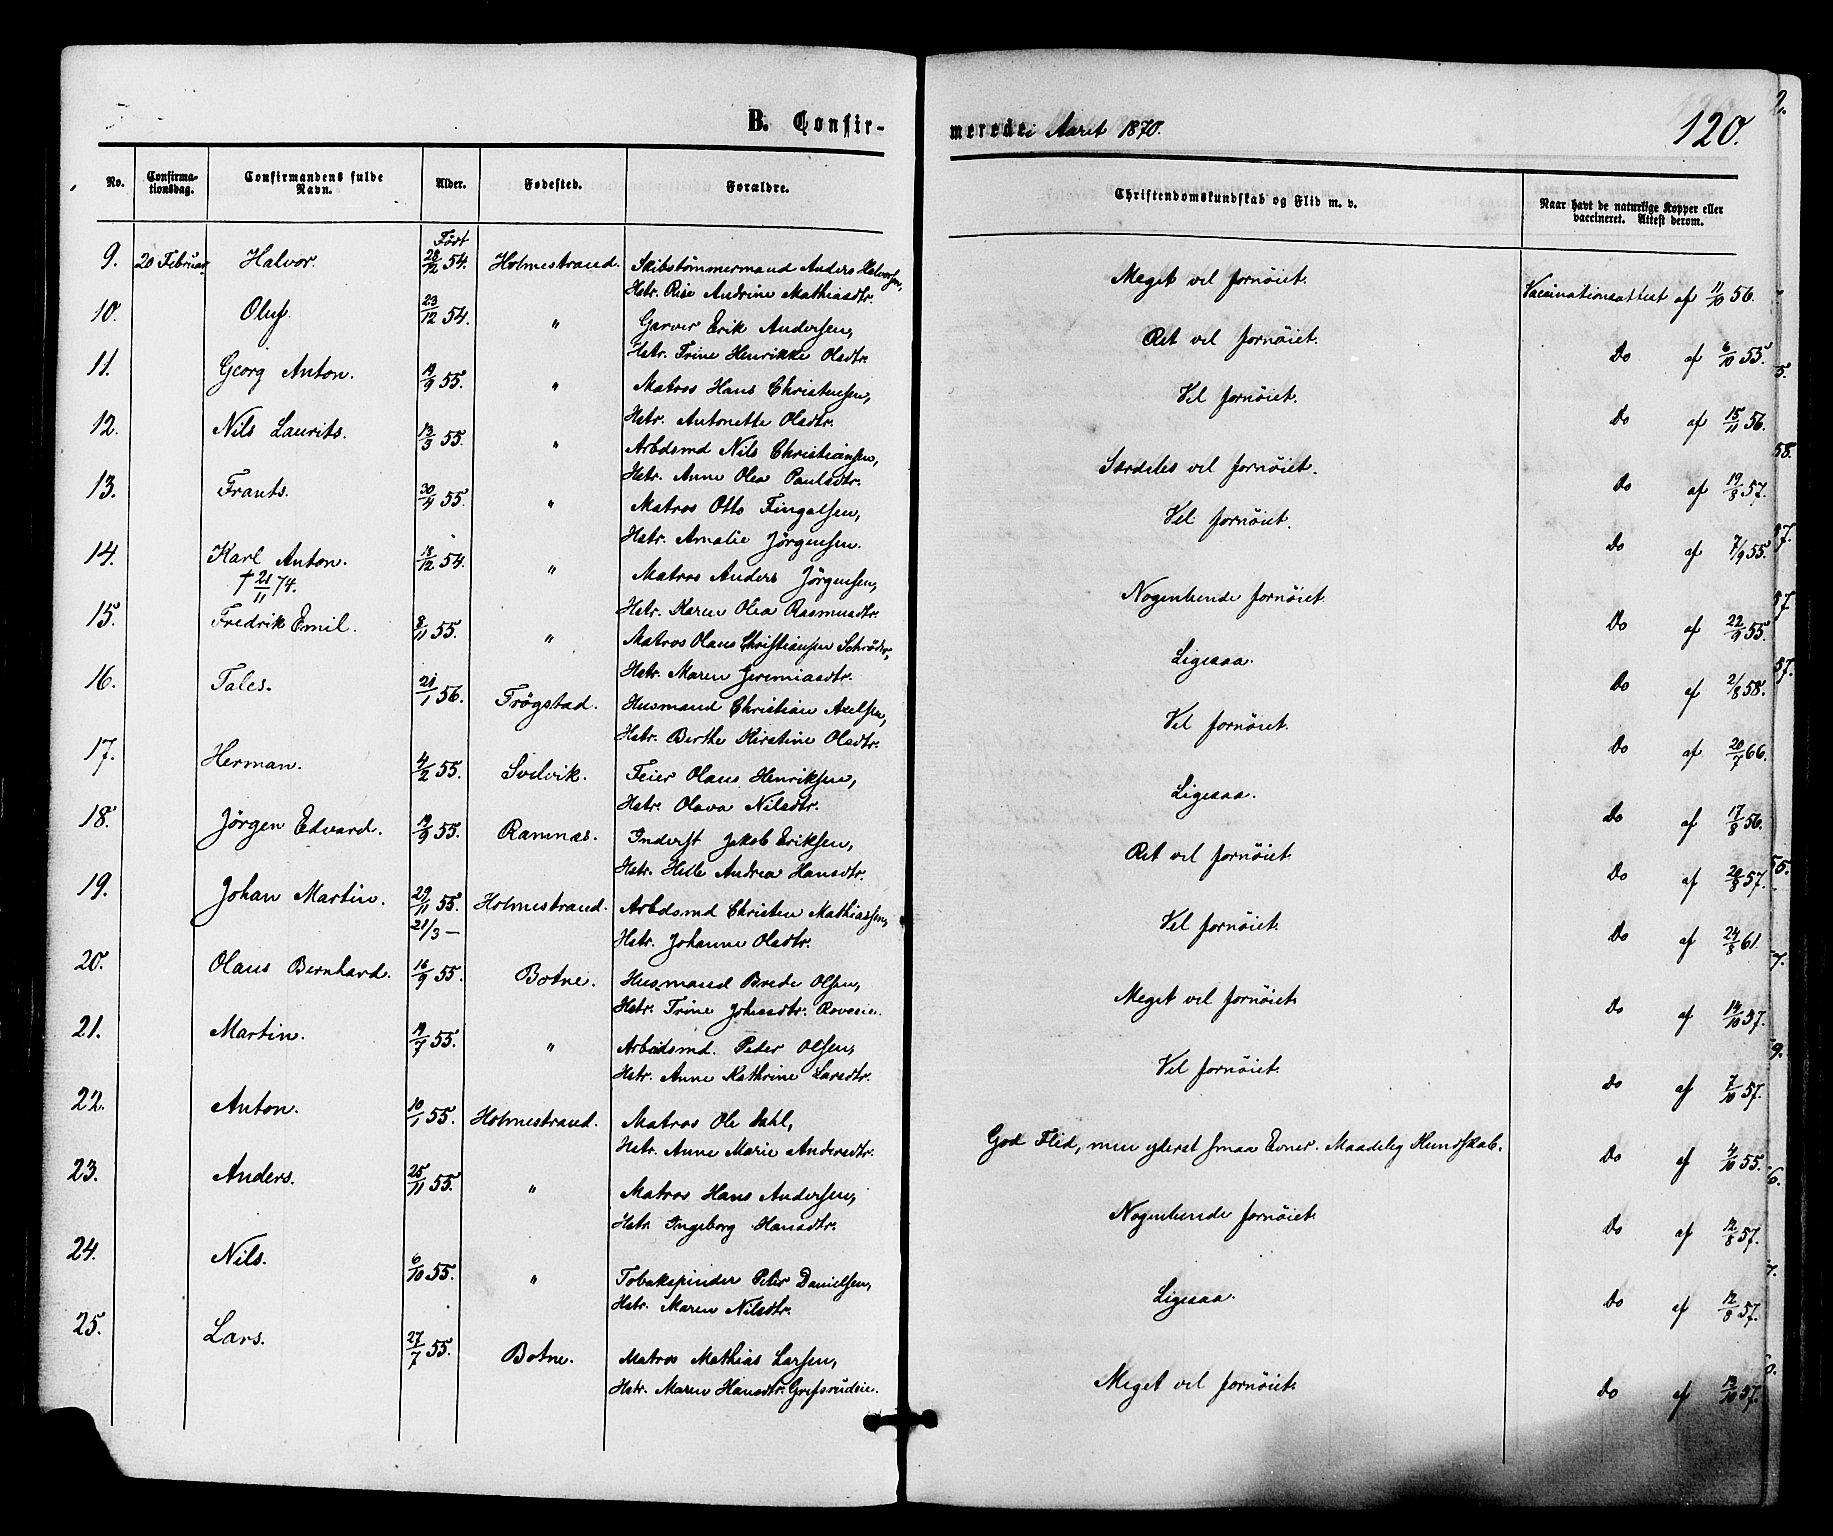 B. Confirmerede i Aaret 1870.
120.
No. Confirmationsdag. Confirmandens fulde Navn. Alder. Fødested. Forældre. Christendomskundskab og Flid m. v. Naar havt de naturlige Kopper eller vaccineret. Attest derom.
Født
9. 20 Februar Halvor. 28/12 54. Holmestrand. Skibstømmermand Anders Halvorsen, Meget vel fornøiet. Vaccinationsattest af 11/10 56.
Hstr. Rise Andrine Mathiasdtr.
10. Oluf. 23/12 54. " Garver Erik Andersen, Ret vel fornøiet. Do af 6/10 55.
Hstr. Trine Henrikke Olsdtr.
11. Georg Anton. 19/9 55. " Matros Hans Christensen, Vel fornøiet. Do af 15/11 56.
Hstr. Antonette Olsdtr.
12. Nils Laurits. 13/3 55. " Arbdsmd Nils Christiansen, Særdeles vel fornøiet. Do af 19/8 57.
Hstr. Anne Olea Paulsdtr.
13. Frants. 30/4 55. " Matros Otto Fingalsen, Vel fornøiet. Do af 7/9 55.
Hstr. Amalie Jörgensen.
14. Karl Anton. 18/12 54. " Matros Anders Jörgensen, Nogenlunde fornøiet. Do af 22/9 55.
† 21/11 74.
Hstr. Karen Olea Rasmusdtr.
15. Fredrik Emil. 8/11 55. " Matros Olaus Christiansen Schröder, Ligesaa. Do af 2/8 58.
Hstr. Maren Jeremiasdtr.
16. Tales. 21/1 56. Trögstad. Husmand Christian Axelsen, Vel fornøiet. Do af 20/7 66.
Hstr. Berthe Kirstine Olsdtr.
17. Herman. 4/2 55. Svelvik. Feier Olaus Henriksen, Ligesaa. Do af 17/8 56.
Hstr. Olava Nilsdtr.
18. Jörgen Edvard. 19/9 55. Ramnæs. Inderst Jakob Eriksen, Ret vel fornøiet. Do af 20/8 57.
Hstr. Helle Andrea Hansdtr.
19. Johan Martin. 29/11 55. Holmestrand. Arbdsmd Christen Mathiassen, Vel fornøiet. Do af 24/8 61.
21/3 —
Hstr. Johanne Olsdtr.
20. Olaus Bernhard. 16/9 55. Botne. Husmand Brede Olsen, Meget vel fornøiet. Do af 14/10 57.
Hstr. Trine Johnsdtr.
21. Martin. 19/7 55. " Arbeidsmd. Peder Olsen, Vel fornøiet. Do af 7/10 57.
Hstr. Anne Kathrine Larsdtr.
22. Anton. 10/1 55. Holmestrand. Matros Ole Dahl, God Flid, men yderst smaa Evner. Maadelig Kundskab. Do af 4/10 55.
Hstr. Anne Marie Andersdtr.
23. Anders. 25/11 55. " Matros Hans Andersen, Nogenlunde fornøiet. Do af 12/8 57.
Hstr. Ingeborg Hansdtr.
24. Nils. 6/10 55. " Tobakspinder Peter Danielsen, Ligesaa. Do af 12/8 57.
Hstr. Maren Nilsdtr.
25. Lars. 27/7 55. Botne. Matros Mathias Larsen, Meget vel fornøiet. Do af 13/10 57.
Hstr. Maren Hansdtr.